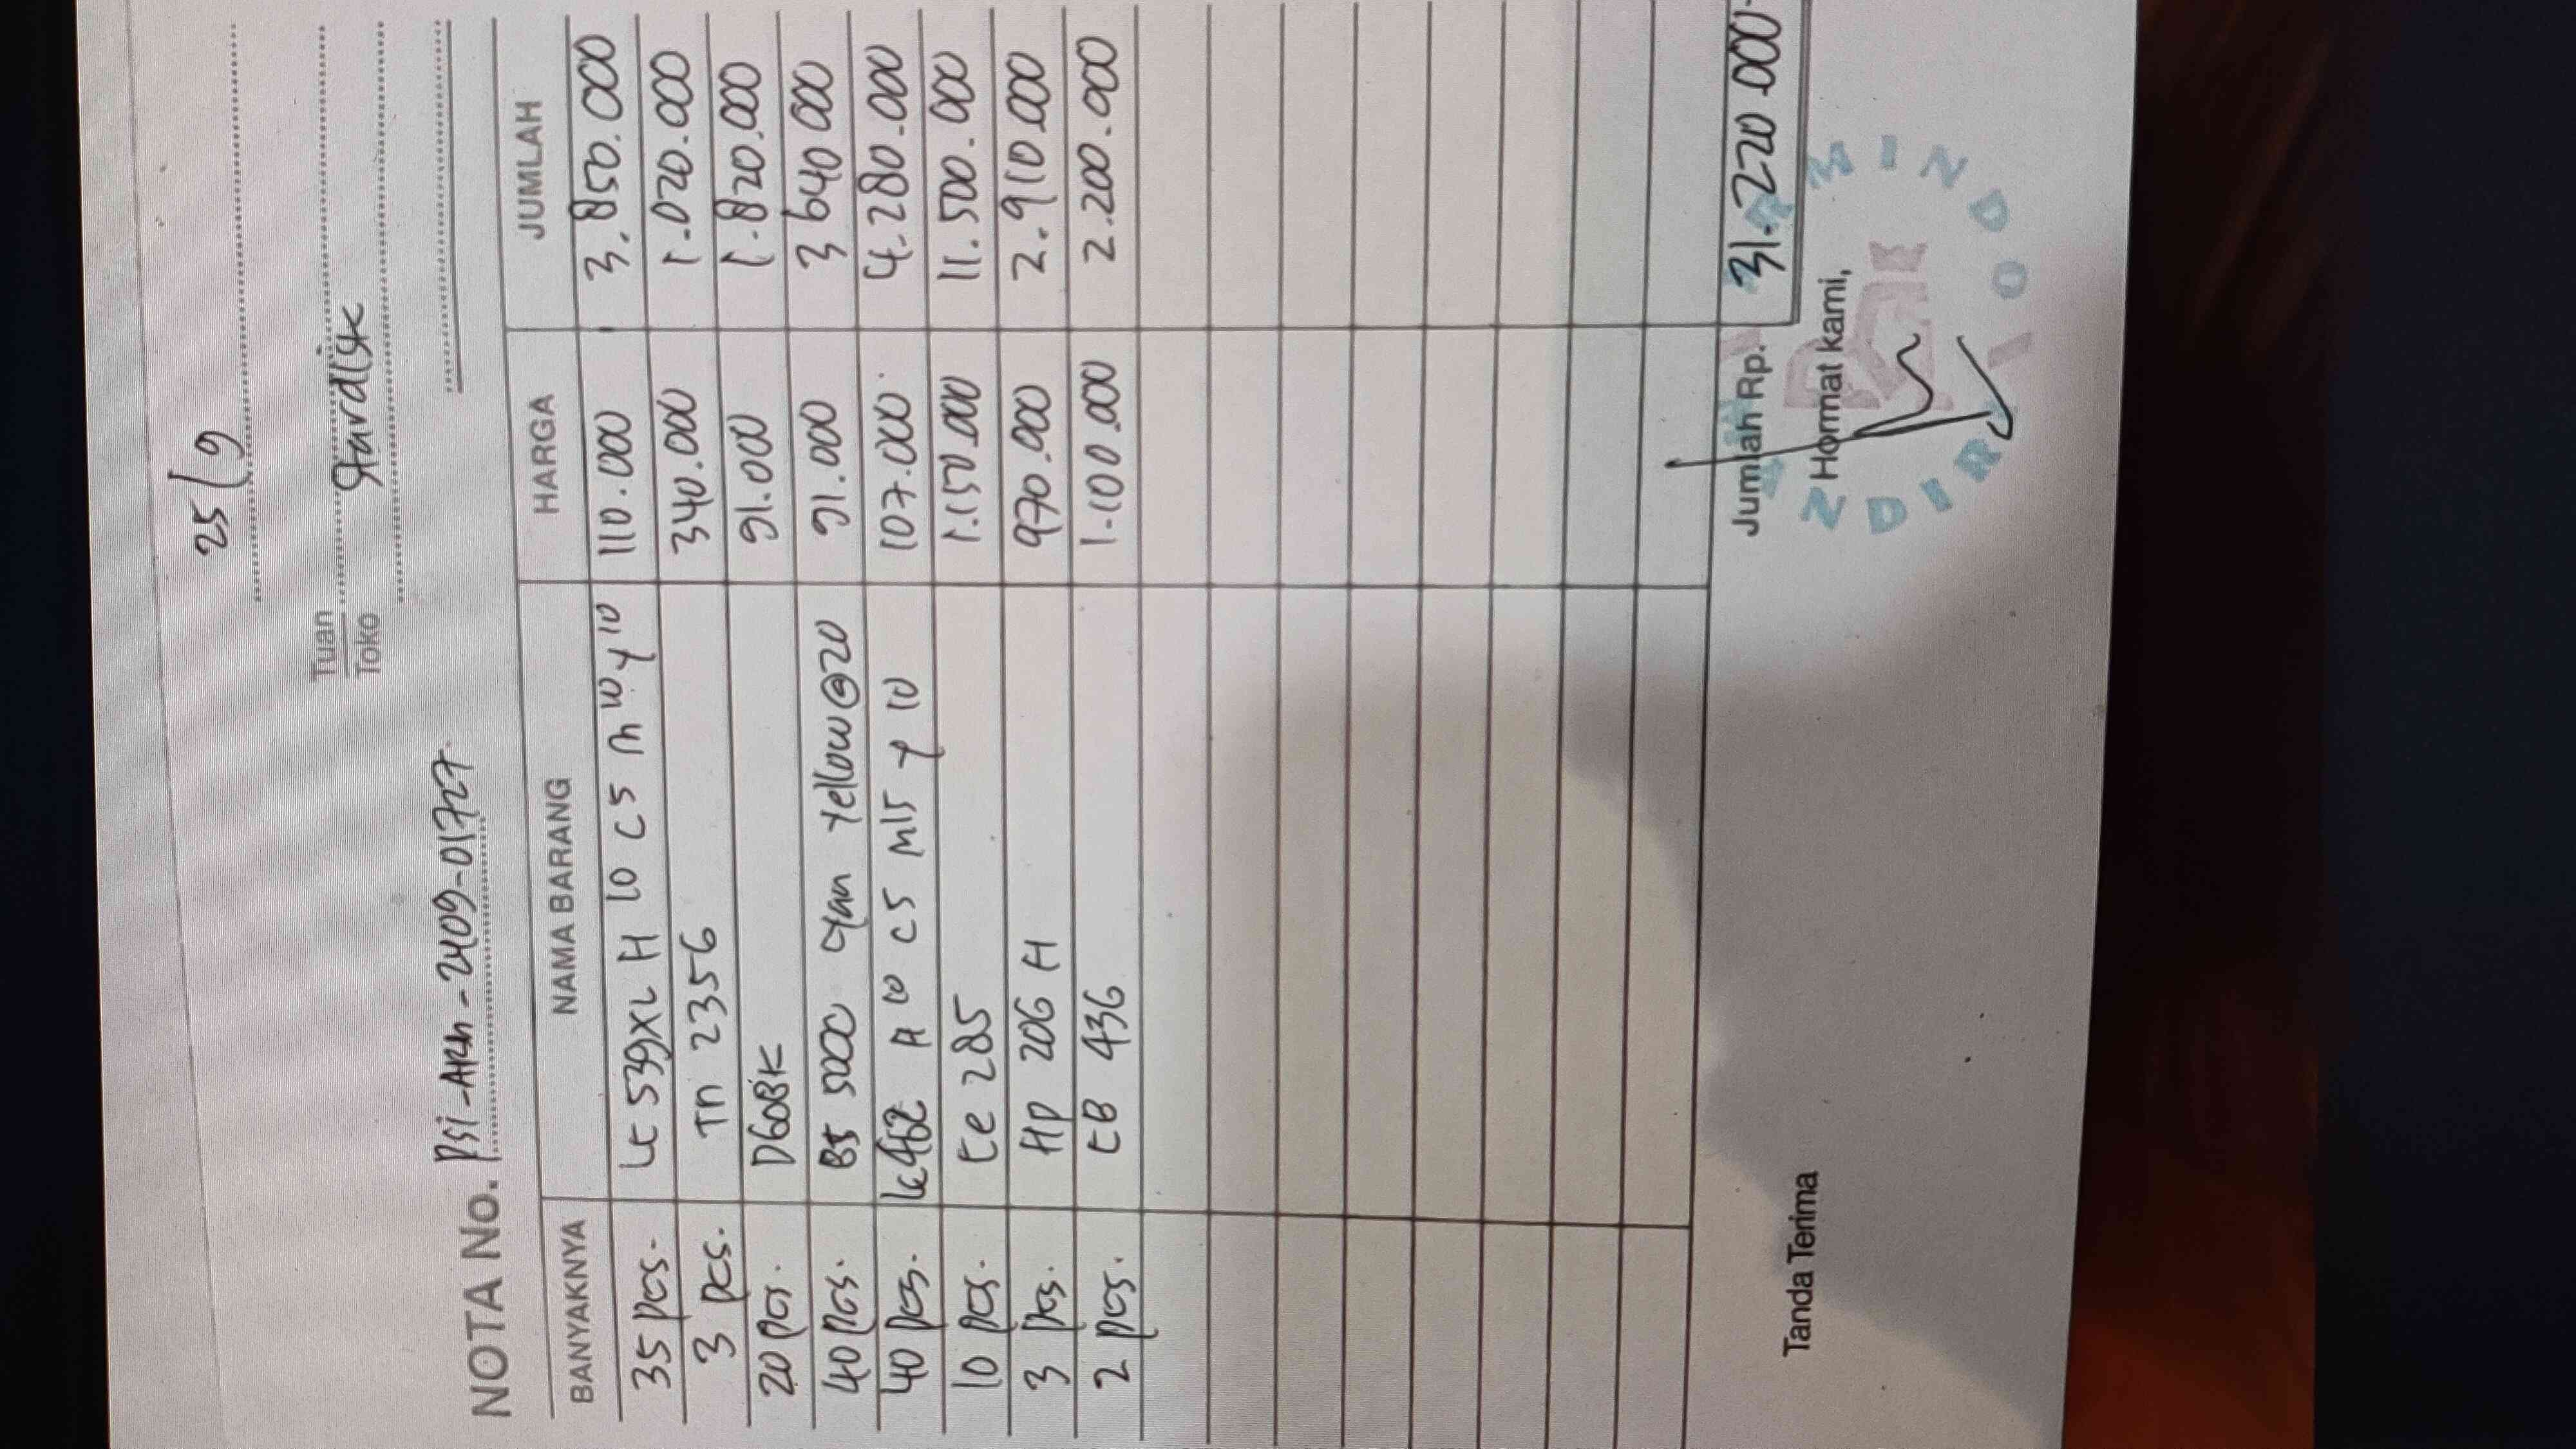 25/9
Tuan
Toko
Stardisk
NOTA No. PSI-ARH-2409-01727
BANYAKNYA NAMA BARANG HARGA JUMLAH
35 pcs. LC 539XL H 10 C 5 M 10 Y 10 110.000 3.850.000
3 pcs. TN 2356 340.000 1.020.000
20 pcs. D60BK 91.000 1.820.000
40 pcs. BT 5000 Cyan Yellow @20 91.000 3.640.000
40 pcs. LC462 H 10 C5 M15 Y 10 107.000 4.280.000
10 pcs. CE 285 1.150.000 11.500.000
3 pcs. HP 206 H 970.000 2.910.000
2 pcs. CB 436 1.100.000 2.200.000
Jumlah Rp. 31.220.000
Tanda Terima Hormat kami,